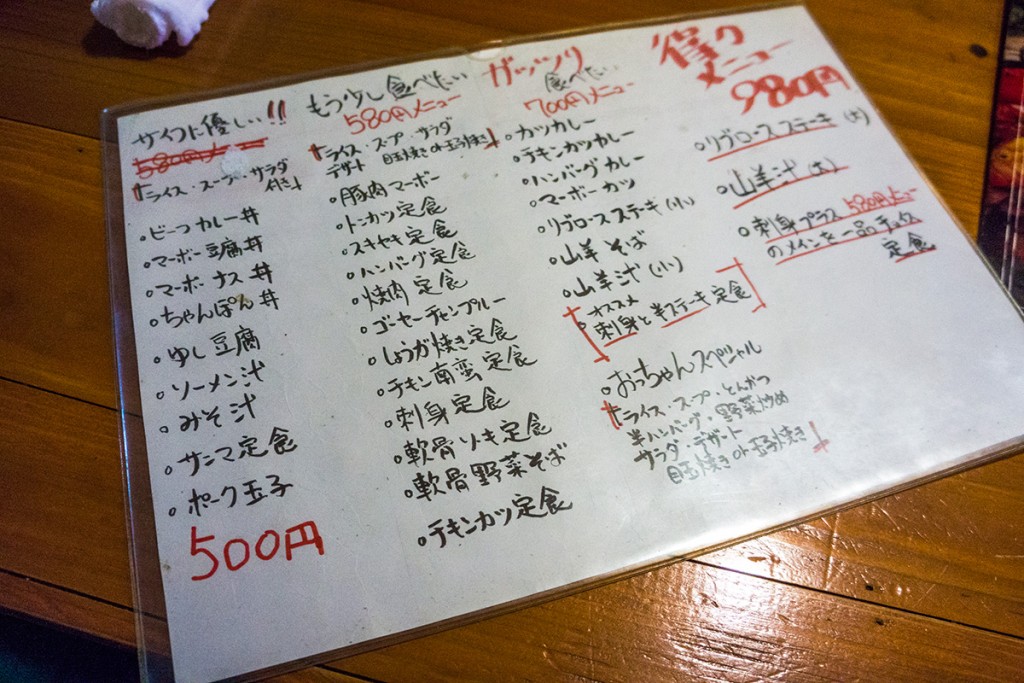 サイフに優しい!!
580円メニュー
ライス・スープ・サラダ
付き
○ビーフカレー丼
○マーボー豆腐丼
○マーボーナス丼
○ちゃんぽん丼
○ゆし豆腐
○ソーメン汁
○みそ汁
○サンマ定食
○ポーク玉子
500円
もう少し食べたい
580円メニュー
ライス・スープ・サラダ
デザート 目玉焼き or 玉子焼き
○豚肉マーボー
○トンカツ定食
○スキヤキ定食
○ハンバーグ定食
○焼肉定食
○ゴーヤーチャンプルー
○しょうが焼き定食
○チキン南蛮定食
○刺身定食
○軟骨ソーキ定食
○軟骨野菜そば
○チキンカツ定食
ガッツリ
食べたい
700円メニュー
○カツカレー
○チキンカツカレー
○ハンバーグカレー
○マーボーカツ
○リブロースステーキ(小)
○山羊そば
○山羊汁(小)
○オススメ
刺身と半ステーキ定食
○おっちゃんスペシャル
ライス・スープ・とんかつ
半ハンバーグ・野菜炒め
サラダ・デザート
目玉焼き or 玉子焼き
メニュー
980円
○リブロースステーキ(大)
○山羊汁(大)
○刺身プラス580円メニュー
のメインを一品チョイス
定食